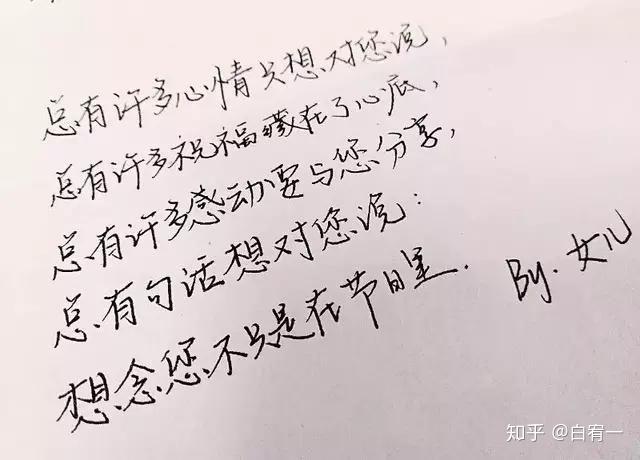 总有许多心情只想对您说，
总有许多祝福藏在了心底，
总有许多感动要与您分享，
总有句话想对您说：
想念您不只是在节日里.
By.女儿
知乎 @白宥一